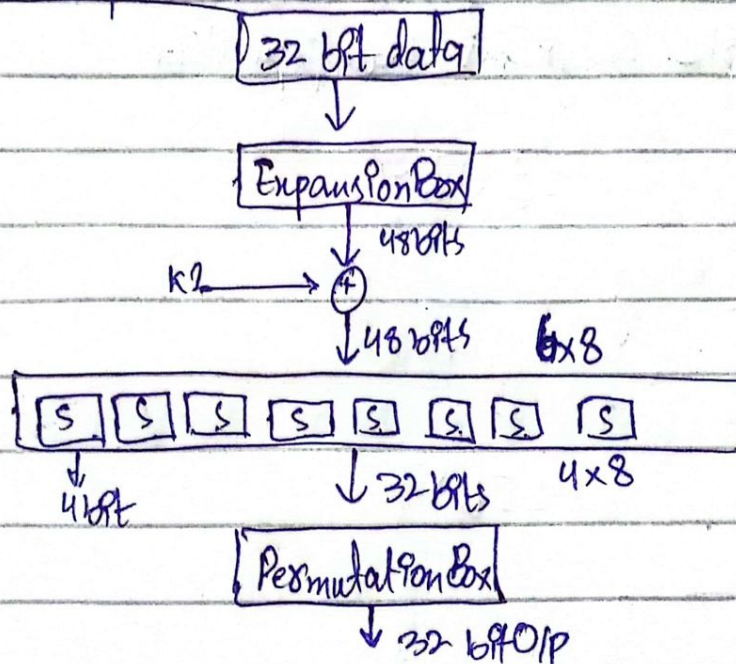 32 bit data
Expansion Box
48 bits
K2
+
48 bits 6x8
S S S S S S S S
4 bit 32 bits 4x8
Permutation Box
32 bit O/P